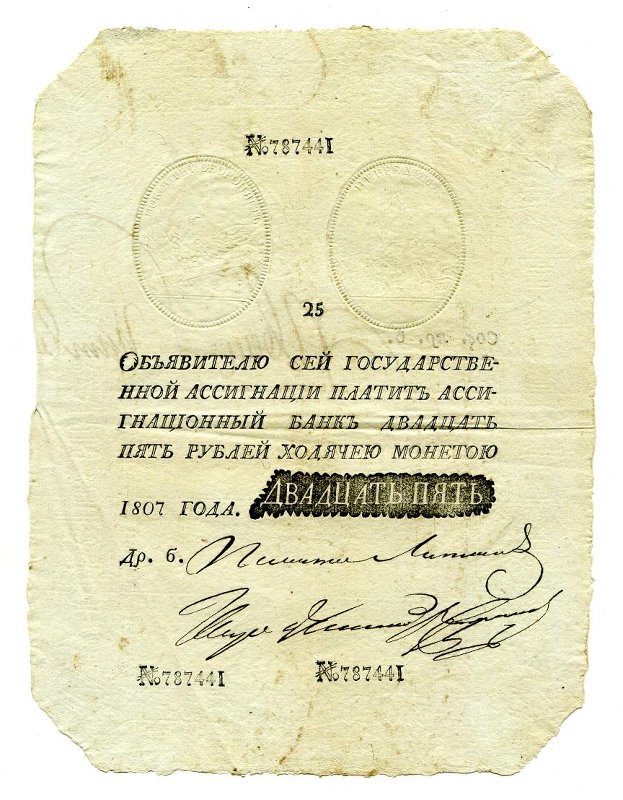 №787441
25
ОБЪЯВИТЕЛЮ СЕЙ ГОСУДАРСТВЕ-
ННОЙ АССИГНАЦІИ ПЛАТИТЪ АССИ-
ГНАЦІОННЫЙ БАНКЪ ДВАДЦАТЬ
ПЯТЬ РУБЛЕЙ ХОДЯЧЕЮ МОНЕТОЮ
1807 ГОДА. ДВАДЦАТЬ ПЯТЬ
Др. б.
№787441 №787441